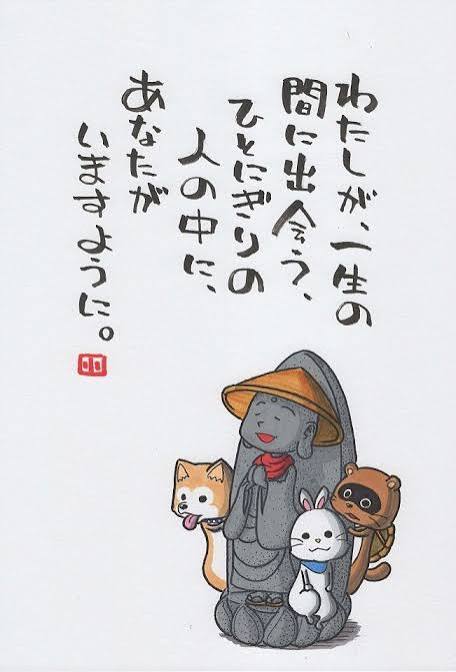 わたしが、一生の
間に出会う、
ひとにぎりの
人の中に、
あなたが
いますように。